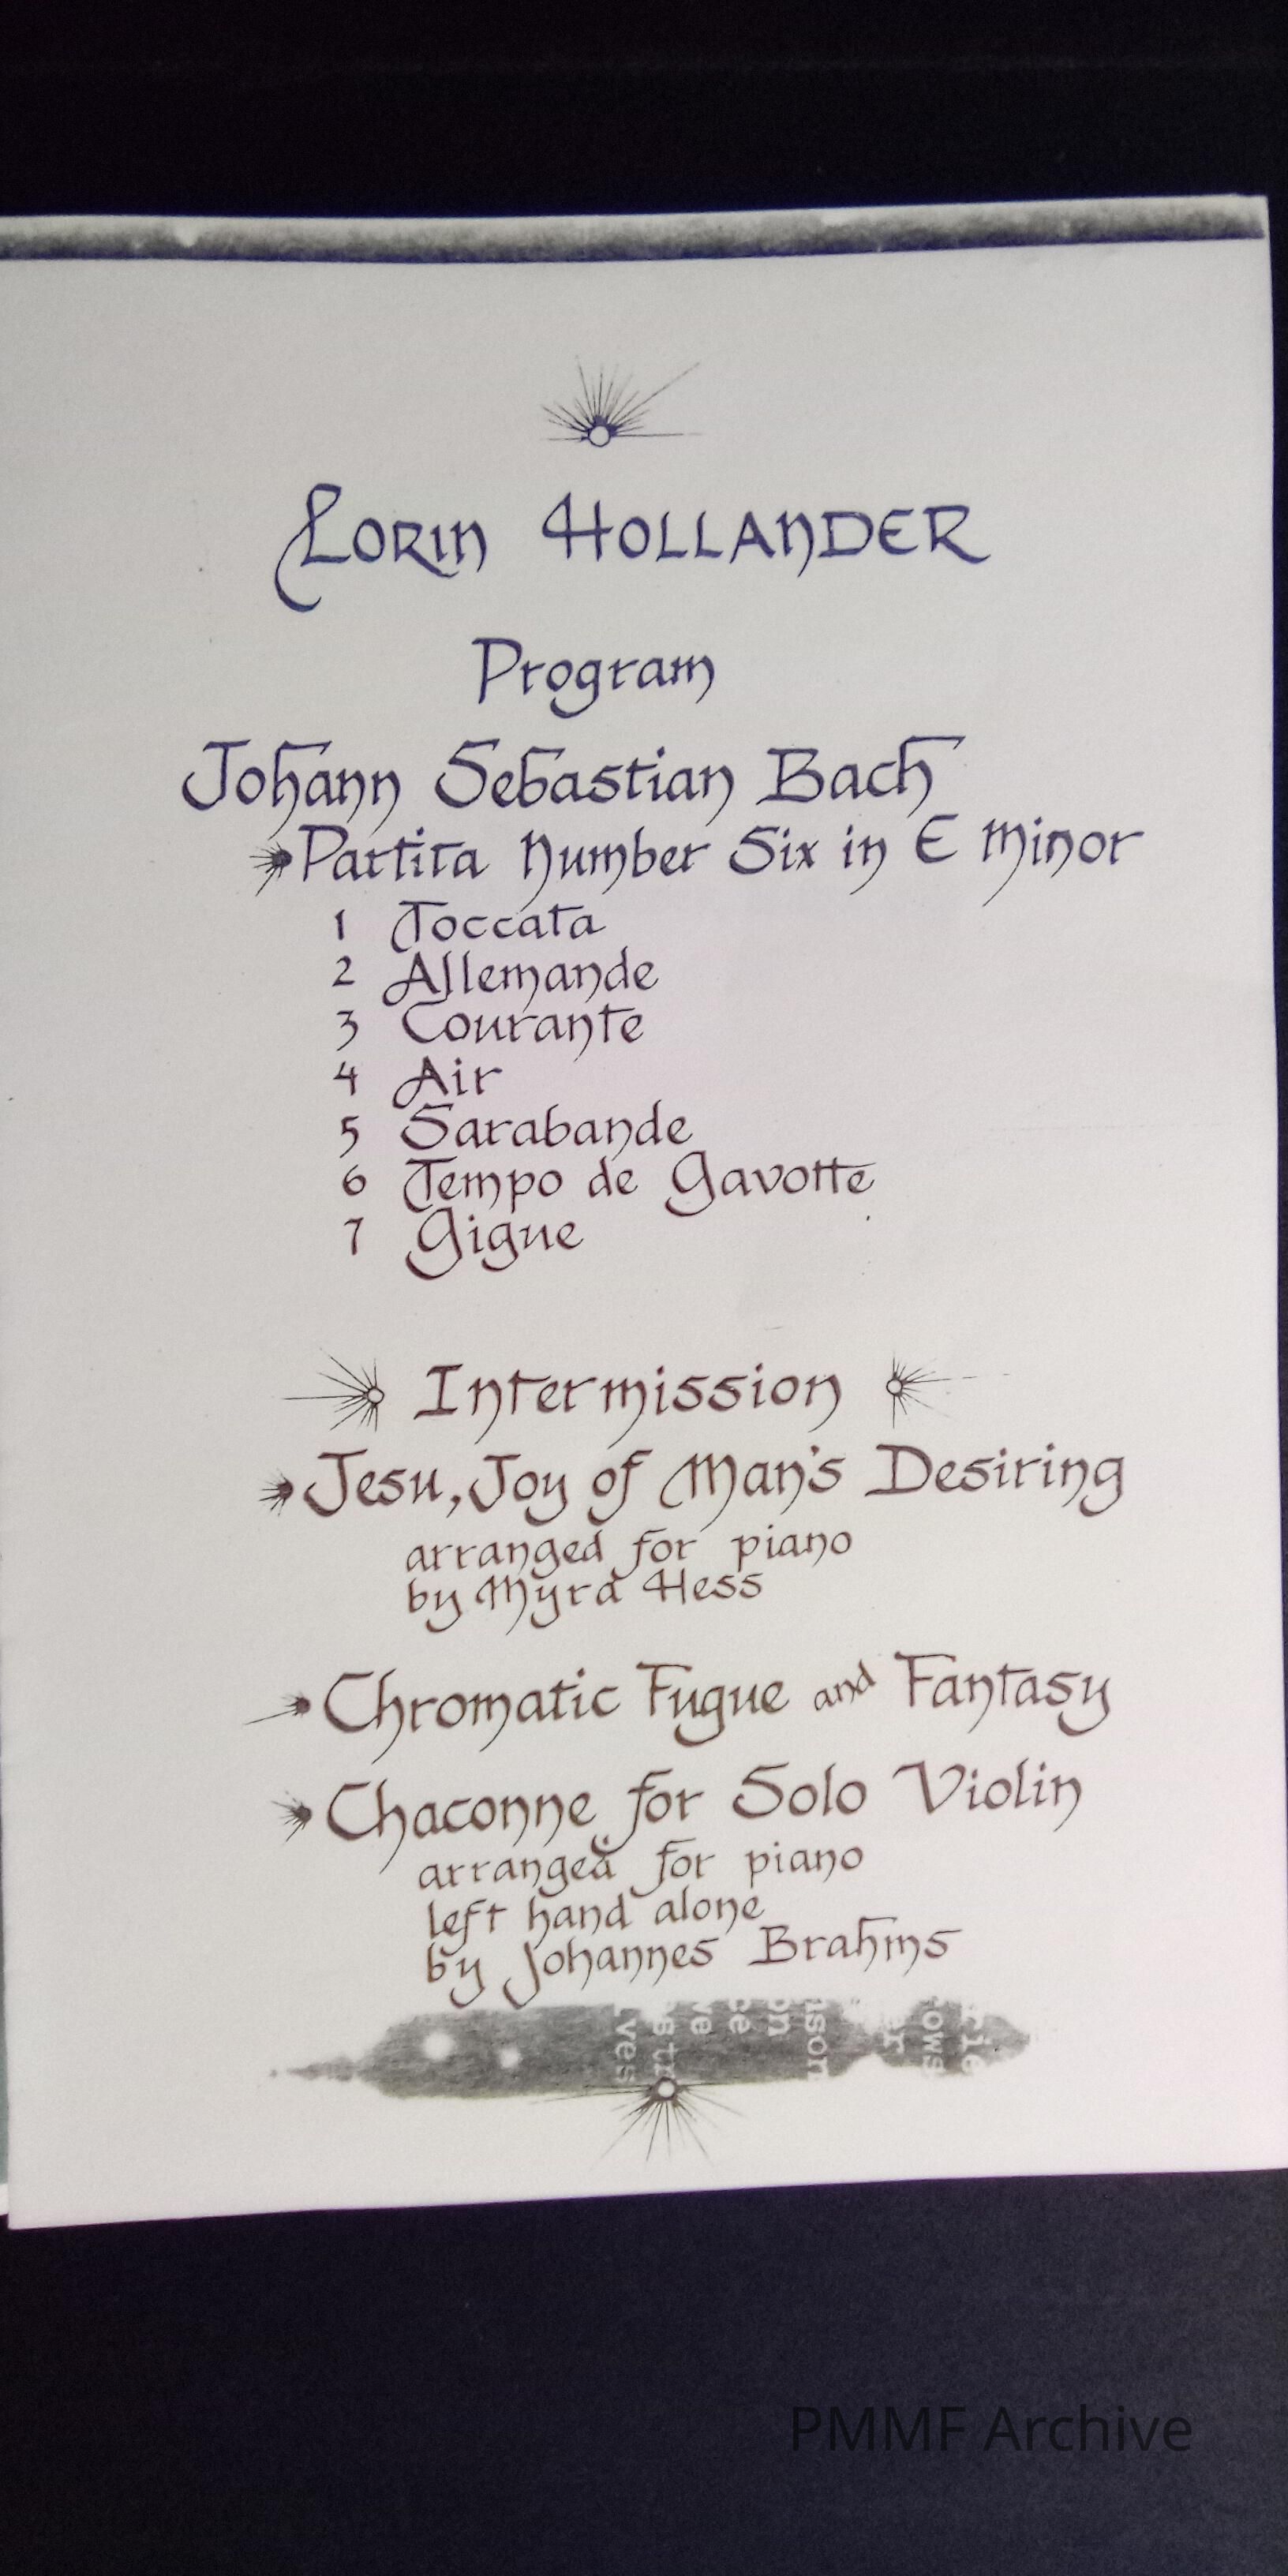 Lorin Hollander
Program
Johann Sebastian Bach
Partita Number Six in E Minor
1 Toccata
2 Allemande
3 Courante
4 Air
5 Sarabande
6 Tempo de Gavotte
7 Gigue
Intermission
Jesu, Joy of Man's Desiring
arranged for piano
by Myra Hess
Chromatic Fugue and Fantasy
Chaconne for Solo Violin
arranged for piano
left hand alone
by Johannes Brahms
PMMF Archive